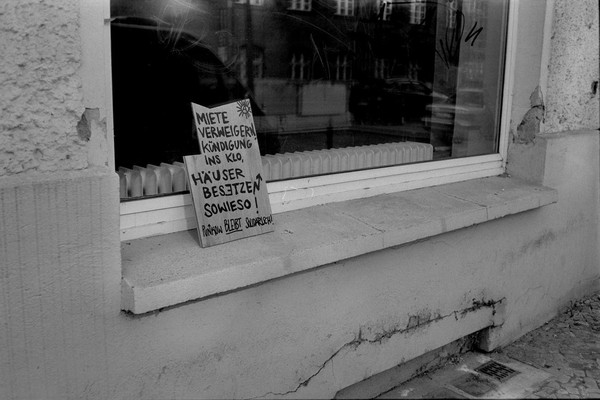 MIETE
VERWEIGERN,
KÜNDIGUNG
INS KLO,
HÄUSER
BESETZEN
SOWIESO!
BLEIBT